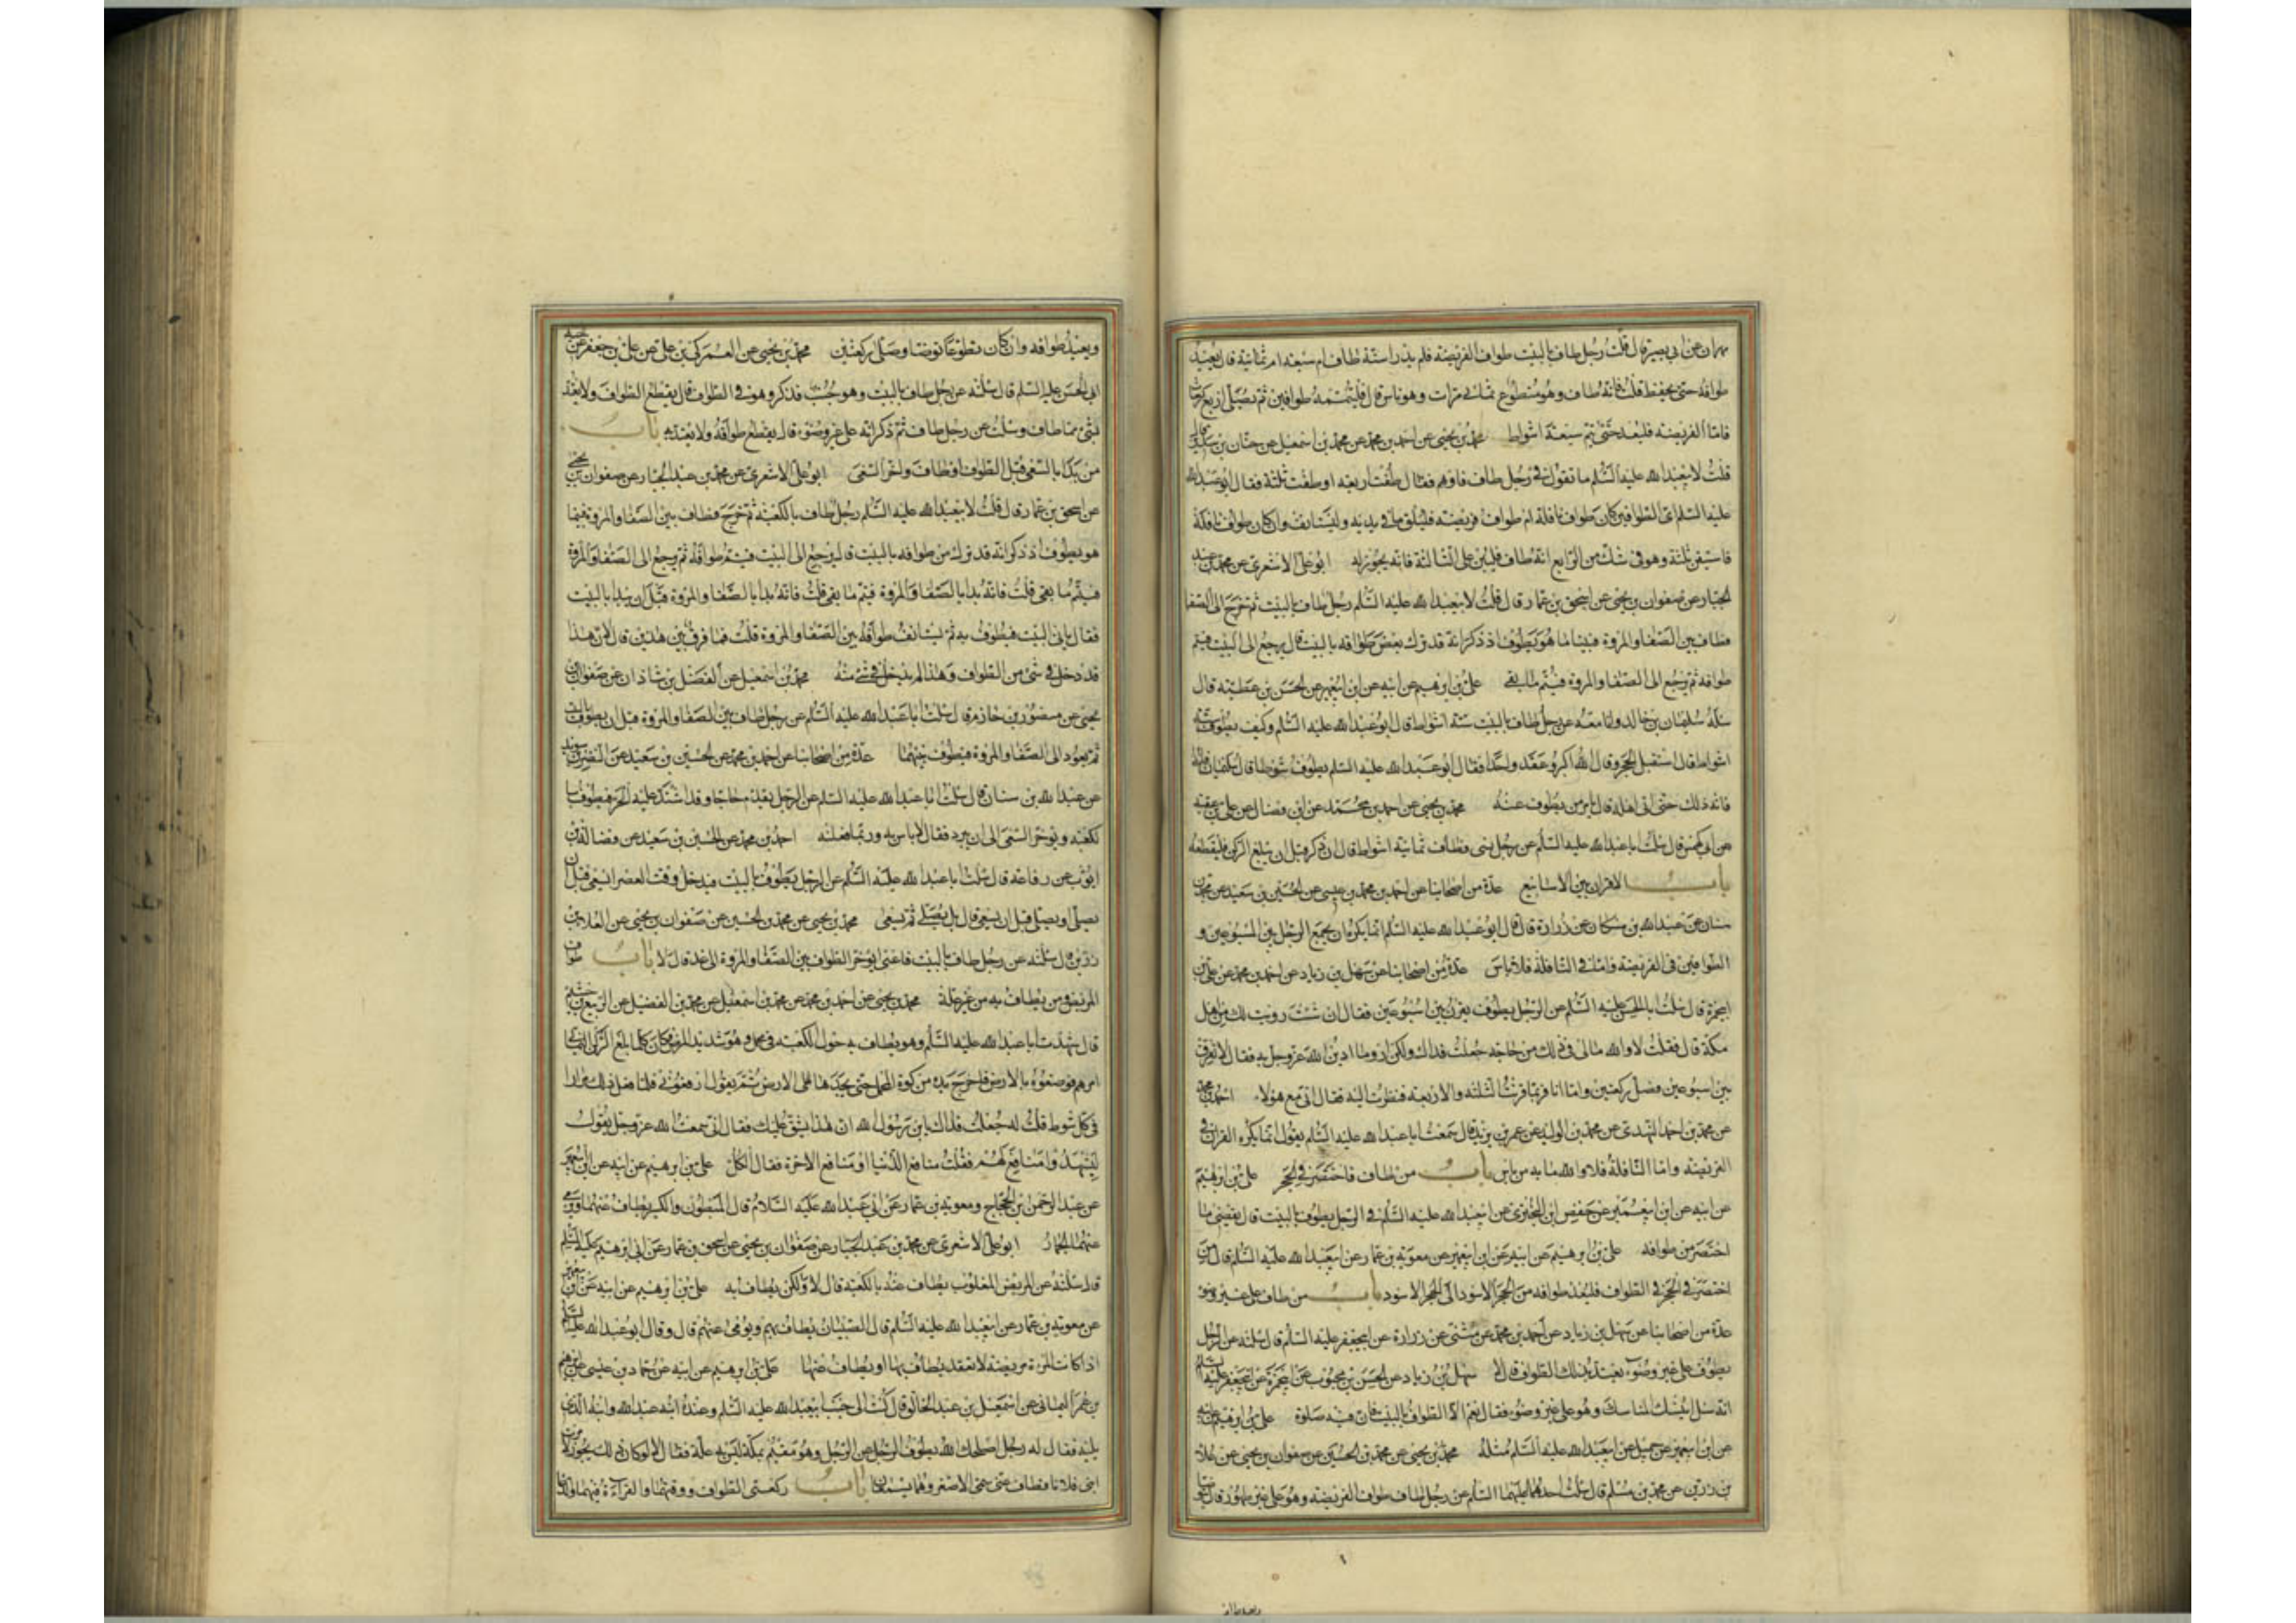 مهران عن ابي بصير قال قلت رجل طاف بالبيت طواف الفريضة فلم يدر استة طاف ام سبعة ام ثمانية قال يعيد
طوافه حتى يحفظ قلت فانه طاف وهو متطوع ثماني مرات وهو ناس قال فليتمه طوافين ثم يصلي اربع ركعات
فاما الفريضة فليعد حتى يتم سبعة اشواط محمد بن يحيى عن احمد بن محمد عن محمد بن اسمعيل عن حنان بن سدير قال
قلت لابيعبد الله عليه السلم ما تقول في رجل طاف فاوهم فقال طفت اربعة او طفت ثلثة فقال ابو عبد الله
عليه السلم اي الطوافين كان طواف نافلة ام طواف فريضة فليلق ما في يديه وليستانف وان كان طواف نافلة
فاستيقن ثلثة وهو في شك من الرابع انه طاف فليبن على الثالثة فانه يجوز له ابو علي الاشعري عن محمد بن عبد
الجبار عن صفوان بن يحيى عن اسحق بن عمار قال قلت لابيعبد الله عليه السلم رجل طاف بالبيت ثم خرج الى الصفا
فطاف بين الصفا والمروة فبينما هو يطوف اذ ذكر انه قد ترك بعض طوافه بالبيت قال يرجع الى البيت فيتم
طوافه ثم يرجع الى الصفا والمروة فيتم ما بقي علي بن ابرهيم عن ابيه عن ابن ابيعمير عن الحسن بن عطية قال
سئله سليمان بن خالد وانا معه عن رجل طاف بالبيت ستة اشواط قال ابو عبد الله عليه السلم وكيف يطوف ستة
اشواط قال استقبل الحجر وقال الله اكبر وعقد واحدا فقال ابو عبد الله عليه السلم يطوف شوطا قال سليمان فانه
فاته ذلك حتى اتى اهله قال يامر من يطوف عنه محمد بن يحيى عن احمد بن محمد عن ابن فضال عن علي بن عقبة
عن ابي كهمس قال سئلت ابا عبد الله عليه السلم عن رجل نسي فطاف ثمانية اشواط قال ان ذكر قبل ان يبلغ الركن فليقطعه
باب الاقران بين الاسابيع عدة من اصحابنا عن احمد بن محمد بن عيسى عن الحسين بن سعيد عن محمد بن
سنان عن عبد الله بن مسكان عن زرارة قال قال ابو عبد الله عليه السلم انما يكره ان يجمع الرجل بين السبوعين و
الطوافين في الفريضة واما في النافلة فلا باس عدة من اصحابنا عن سهل بن زياد عن احمد بن محمد عن علي بن
ابيحمزة قال سئلت ابا الحسن عليه السلم عن الرجل يطوف يقرن بين اسبوعين فقال ان شئت رويت لك عن اهل
مكة قال فقلت لا والله مالي في ذلك من حاجة جعلت فداك ولكن ارو ما ادين الله عز وجل به فقال لا تقرن
بين اسبوعين فصل ركعتين واما انا فربما قرنت الثلثة والاربعة فنظرت اليه فقال اني مع هؤلاء احمد بن محمد
عن محمد بن احمد النهدي عن محمد بن الوليد عن عمر بن يزيد قال سمعت ابا عبد الله عليه السلم يقول انما يكره القران في
الفريضة واما النافلة فلا والله ما به من باس باب من طاف فاختصر في الحجر علي بن ابرهيم
عن ابيه عن ابن ابيعمير عن حفص ابن البختري عن ابيعبد الله عليه السلم في الرجل يطوف بالبيت قال يقضي ما
اختصر من طوافه علي بن ابرهيم عن ابيه عن ابن ابيعمير عن معوية بن عمار عن ابيعبد الله عليه السلم قال من
اختصر في الحجر في الطواف فليعد طوافه من الحجر الاسود الى الحجر الاسود باب من طاف على غير وضوء
عدة من اصحابنا عن سهل بن زياد عن احمد بن محمد عن مثنى عن زرارة عن ابيجعفر عليه السلم قال سئلته عن الرجل
يطوف على غير وضوء ايعتد بذلك الطواف قال لا سهل بن زياد عن الحسن بن محبوب عن ابيحمزة عن ابيجعفر عليه السلم
انه سئل اينسك المناسك وهو على غير وضوء فقال نعم الا الطواف بالبيت فان فيه صلوة علي بن ابرهيم عن ابيه
عن ابن ابيعمير عن جميل عن ابيعبد الله عليه السلم مثله محمد بن يحيى عن محمد بن الحسين عن صفوان بن يحيى عن علاء
بن رزين عن محمد بن مسلم قال سئلت احدهما عليهما السلم عن رجل طاف طواف الفريضة وهو على غير طهور قال يتوضا
ويعيد طوافه وان كان تطوعا توضا وصلى ركعتين محمد بن يحيى عن العمركي بن علي عن علي بن جعفر عن اخيه
ابي الحسن عليه السلم قال سئلته عن رجل طاف بالبيت وهو جنب فذكر وهو في الطواف قال يقطع الطواف ولا يعتد
بشئ مما طاف وسئلت عن رجل طاف ثم ذكر انه على غير وضوء قال يقطع طوافه ولا يعتد به باب
من بدا بالسعي قبل الطواف او طاف واخر السعي ابو علي الاشعري عن محمد بن عبد الجبار عن صفوان بن يحيى
عن اسحق بن عمار قال قلت لابيعبد الله عليه السلم رجل طاف بالكعبة ثم خرج فطاف بين الصفا والمروة فبينما
هو يطوف اذ ذكر انه قد ترك من طوافه بالبيت قال يرجع الى البيت فيتم طوافه ثم يرجع الى الصفا والمروة
فيتم ما بقي قلت فانه بدا بالصفا والمروة قبل ان يبدا بالبيت
فقال ياتي البيت فيطوف به ثم يستانف طوافه بين الصفا والمروة قلت فما فرق بين هذين قال لان هذا
قد دخل في شئ من الطواف وهذا لم يدخل في شئ منه محمد بن اسمعيل عن الفضل بن شاذان عن صفوان بن
يحيى عن منصور بن حازم قال سئلت ابا عبد الله عليه السلم عن رجل طاف بين الصفا والمروة قبل ان يطوف بالبيت
ثم يعود الى الصفا والمروة فيطوف بينهما عدة من اصحابنا عن احمد بن محمد عن الحسين بن سعيد عن النضر بن سويد
عن عبد الله بن سنان قال سئلت ابا عبد الله عليه السلم عن الرجل يقدم حاجا وقد اشتد عليه الحر فيطوف با
لكعبة ويؤخر السعي الى ان يبرد فقال لا باس به وربما فعلته احمد بن محمد عن الحسين بن سعيد عن فضالة بن
ايوب عن رفاعة قال سئلت ابا عبد الله عليه السلم عن الرجل يطوف بالبيت فيدخل وقت العصر ايسعى قبل ان
يصلي او يصلي قبل ان يسعى قال بل يصلي ثم يسعى محمد بن يحيى عن محمد بن الحسين عن صفوان بن يحيى عن العلاء بن
رزين قال سئلته عن رجل طاف بالبيت فاعيى ايؤخر الطواف بين الصفا والمروة الى غد قال لا باب طواف
المريض ومن يطاف به من غير علة محمد بن يحيى عن احمد بن محمد عن محمد بن اسمعيل عن محمد بن الفضيل عن الربيع بن خثيم
قال شهدت ابا عبد الله عليه السلم وهو يطاف به حول الكعبة في محمل وهو شديد المرض فكان كلما بلغ الركن اليماني
امرهم فوضعوه بالارض فاخرج يده من كوة المحمل حتى يجرها على الارض ثم يقول ارفعوني فلما فعل ذلك مرارا
في كل شوط قلت له جعلت فداك يابن رسول الله ان هذا يشق عليك فقال اني سمعت الله عز وجل يقول
ليشهدوا منافع لهم فقلت منافع الدنيا او منافع الاخرة فقال الكل علي بن ابرهيم عن ابيه عن ابن ابيعمير
عن عبد الرحمن بن الحجاج ومعوية بن عمار عن ابي عبد الله عليه السلام قال المبطون والكسير يطاف عنهما ويرمى
عنهما الجمار ابو علي الاشعري عن محمد بن عبد الجبار عن صفوان بن يحيى عن اسحق بن عمار عن ابي ابرهيم عليه السلم
قال سئلته عن المريض المغلوب يطاف عنه بالكعبة قال لا ولكن يطاف به علي بن ابرهيم عن ابيه عن ابن ابيعمير
عن معوية بن عمار عن ابيعبد الله عليه السلم قال الصبيان يطاف بهم ويرمى عنهم قال وقال ابو عبد الله عليه السلم
اذا كانت المرءة مريضة لا تعقد يطاف بها او يطاف عنها علي بن ابرهيم عن ابيه عن حماد بن عيسى عن ابرهيم
بن عمر اليماني عن اسمعيل بن عبد الخالق قال كنت الى جنب ابيعبد الله عليه السلم وعنده ابنه عبد الله وابنه الذي
يليه فقال له رجل اصلحك الله يطوف الرجل عن الرجل وهو مقيم بمكة ليس به علة فقال لا لو كان ذلك يجوز لامرت
ابني فلانا فطاف عني سمي الاصغر وهما يسمعان باب ركعتي الطواف ووقتهما والقراءة فيهما والدعا